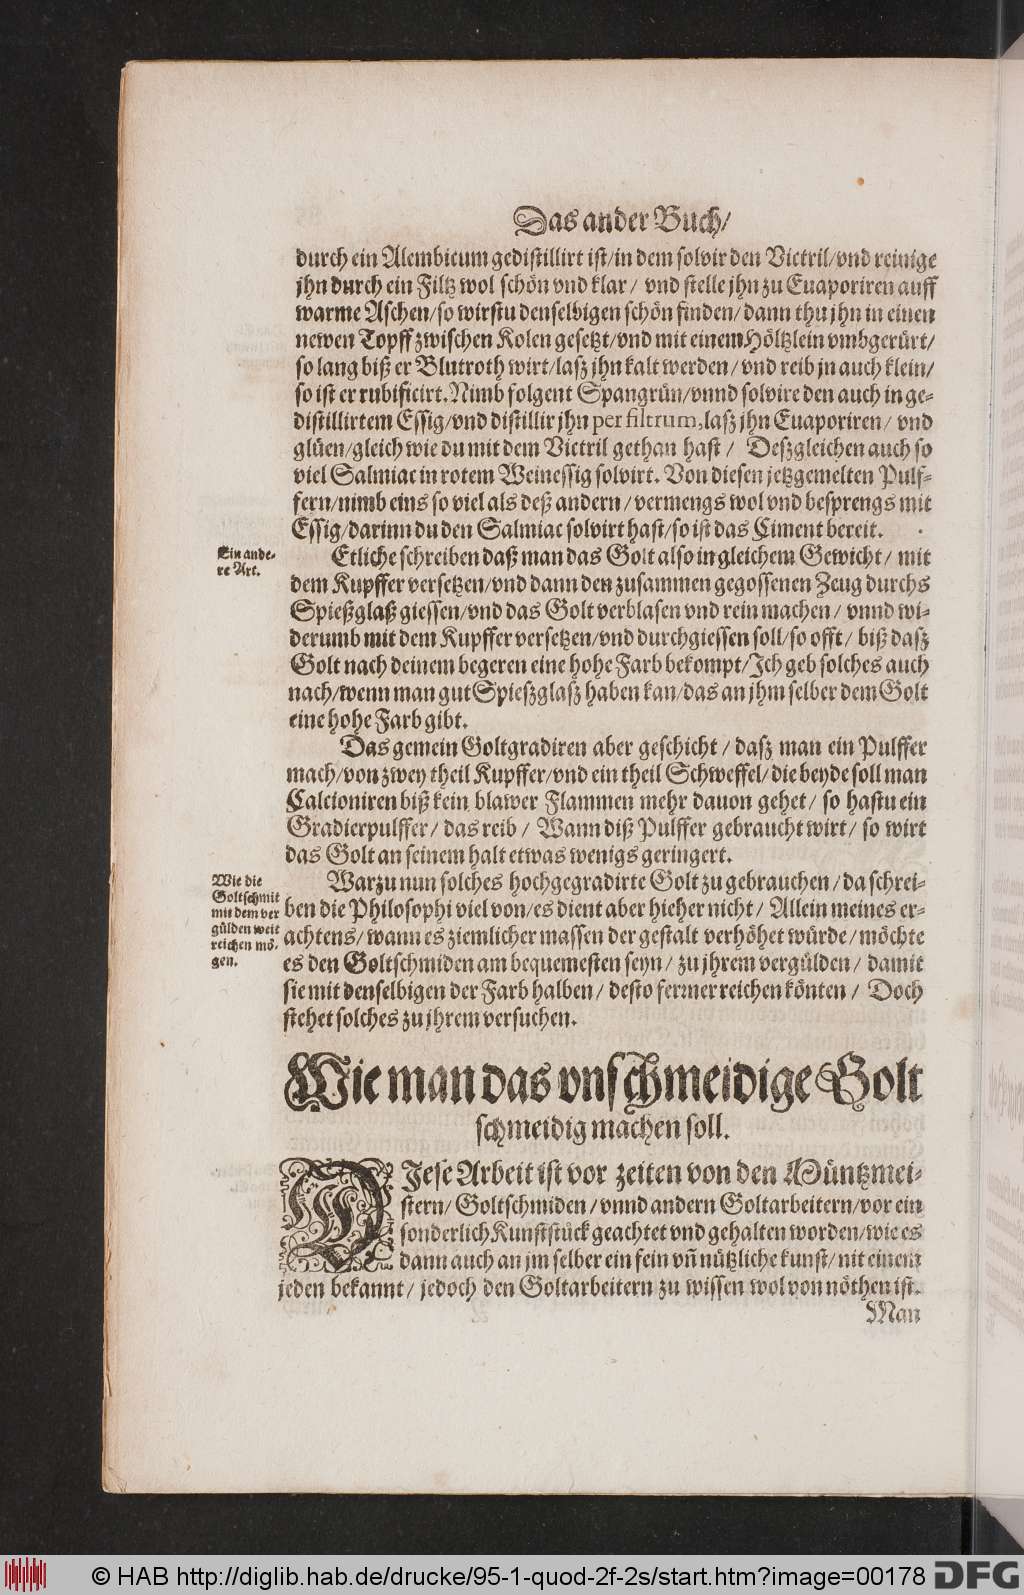 Das ander Buch/
durch ein Alembicum gedistillirt ist/in dem solvir den Victril/vnd reinige
jhn durch ein Filtz wol schön vnd klar/ vnd stelle jhn zu Euaporiren auff
warme Aschen/so wirstu denselbigen schön finden/dann thu jhn in einen
newen Topff zwischen Kolen gesetzt/vnd mit einem Höltzlein vmbgerürt/
so lang biß er Blutroth wirt/laß jhn kalt werden/vnd reib jn auch klein/
so ist er rubificirt. Nimb folgent Spangrün/vnnd solvire den auch in ge-
distillirtem Essig/vnd distillir jhn per filtrum, laß jhn Euaporiren/ vnd
glüen/gleich wie du mit dem Victril gethan hast/ Deßgleichen auch so
viel Salmiac in rotem Weinessig solvirt. Von diesen jetzgemelten Pulf-
fern/nimb eins so viel als deß andern/vermengs wol vnd besprengs mit
Essig/darinn du den Salmiac solvirt hast/so ist das Ciment bereit.
Ein ande-
re Art.
Etliche schreiben daß man das Golt also in gleichem Gewicht/ mit
dem Kupffer versetzen/vnd dann den zusammen gegossenen Zeug durchs
Spießglaß giessen/vnd das Golt verblasen vnd rein machen/ vnnd wi-
derumb mit dem Kupffer versetzen/vnd durchgiessen soll/so offt/ biß daß
Golt nach deinem begeren eine hohe Farb bekompt/Ich geb solches auch
nach/wenn man gut Spießglaß haben kan/das an jhm selber dem Golt
eine hohe Farb gibt.
Das gemein Goltgradiren aber geschicht/ daß man ein Pulffer
mach/von zwey theil Kupffer/vnd ein theil Schweffel/die beyde soll man
Calcioniren biß kein blawer Flammen mehr dauon gehet/ so hastu ein
Gradierpulffer/ das reib/ Wann diß Pulffer gebraucht wirt/ so wirt
das Golt an seinem halt etwas wenigs geringert.
Wie die
Goltschmit
mit dem ver
gülden weit
reichen mö-
gen.
Warzu nun solches hochgegradirte Golt zu gebrauchen/da schrei-
ben die Philosophi viel von/es dient aber hieher nicht/ Allein meines er-
achtens/wann es ziemlicher massen der gestalt verhöhet würde/möchte
es den Goltschmiden am bequemesten seyn/ zu jhrem vergülden/ damit
sie mit denselbigen der Farb halben/ desto ferner reichen könten/ Doch
stehet solches zu jhrem versuchen.
Wie man das vnschmeidige Golt
schmeidig machen soll.
DIese Arbeit ist vor zeiten von den Müntzmei-
stern/ Goltschmiden/vnnd andern Goltarbeitern/vor ein
sonderlich Kunststück geachtet vnd gehalten worden/wie es
dann auch an jm selber ein fein vñ nützliche kunst/nit einem
jeden bekannt/ jedoch den Goltarbeitern zu wissen wol von nöthen ist.
Man
© HAB http://diglib.hab.de/drucke/95-1-quod-2f-2s/start.htm?image=00178
DFG